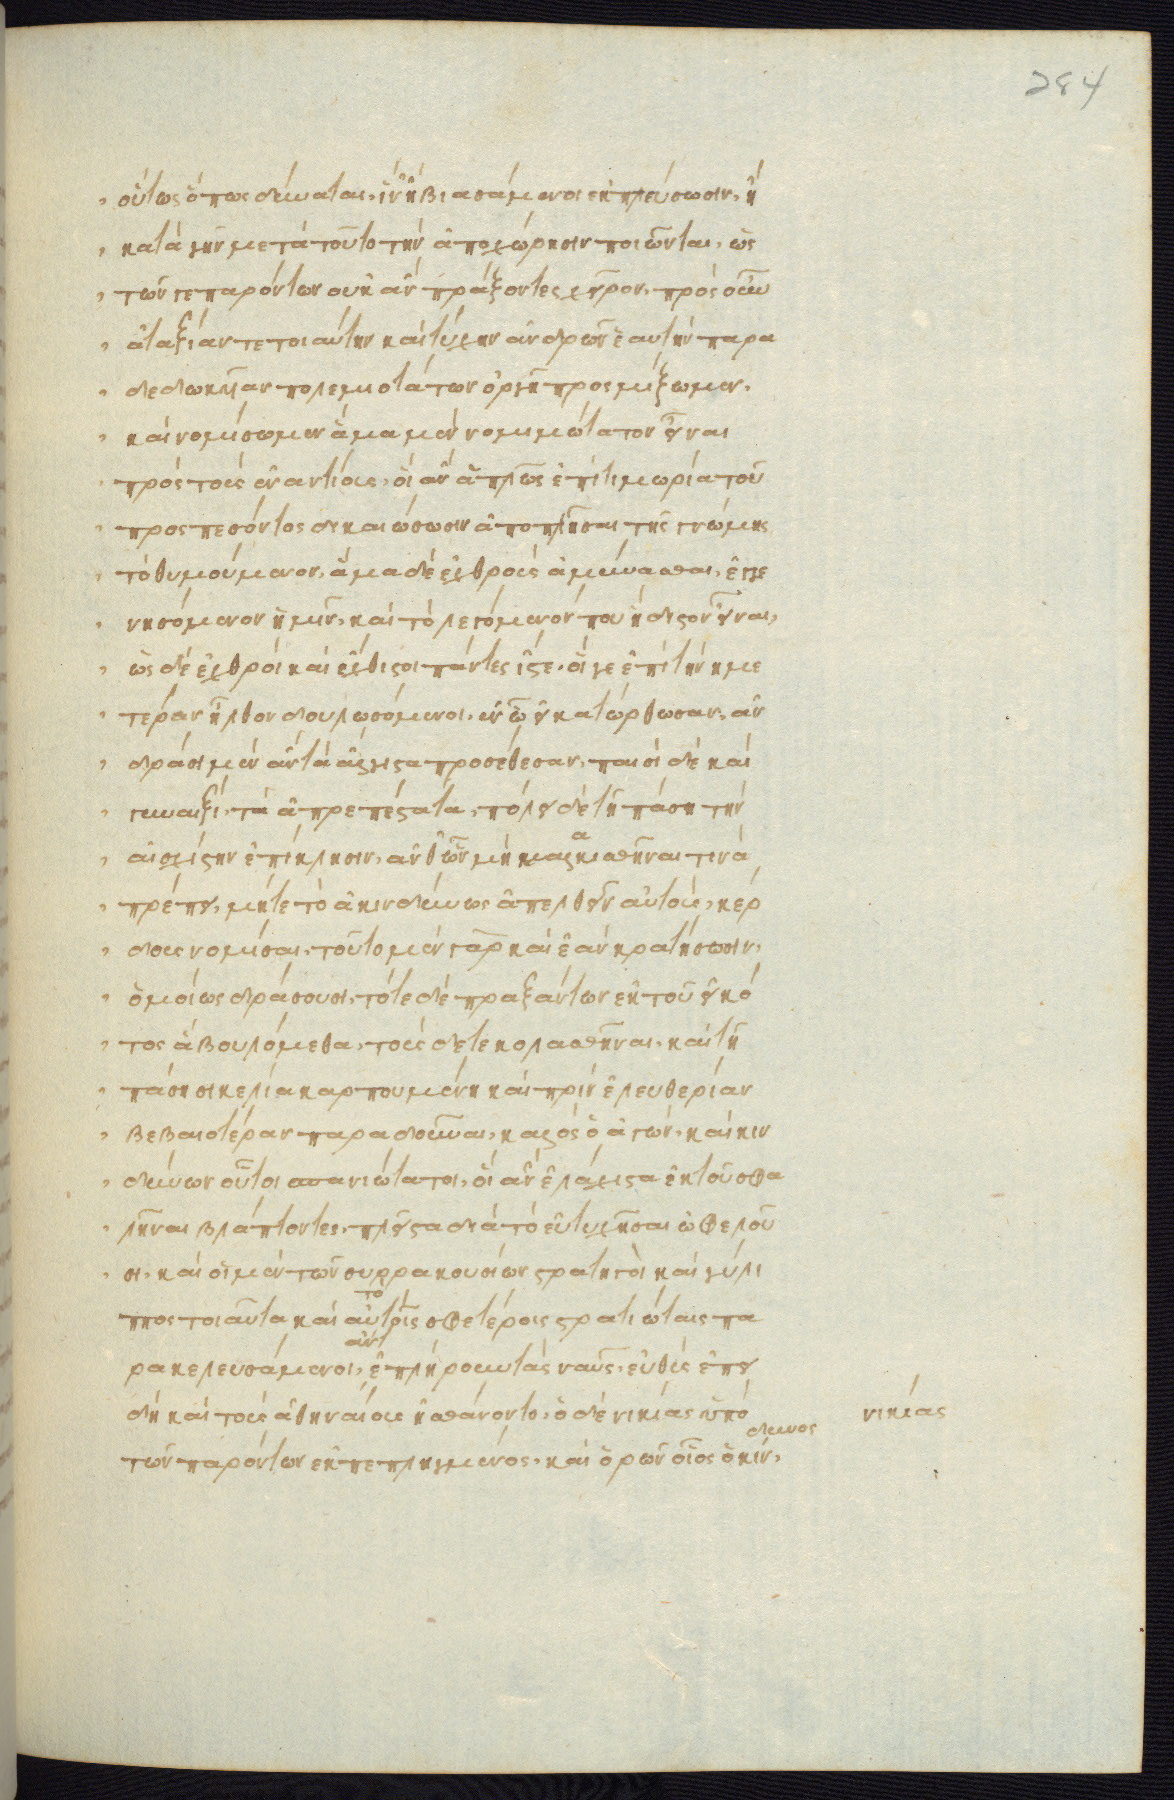 284
οὕτως ὅπως δύναται, ἵν ἢ βιασάμενοι ἐκπλεύσωσιν, ἢ
κατὰ γῆν μετὰ τοῦτο τὴν ἀποχώρησιν ποιῶνται, ὡς
τῶν γε παρόντων οὐκ ἂν πράξοντες χεῖρον, πρὸς οὖν
ἀταξίαν τε τοιαύτην καὶ τύχην ἀνδρῶν ἑαυτὴν παρα
δεδωκυῖαν πολεμιοτάτων ὀργῆ προσμίξωμεν,
καὶ νομίσωμεν ἅμα μὲν νομιμώτατον εἶναι
πρὸς τοὺς ἐναντίους, οἳ ἂν ἁπλῶς ἐπὶ τιμωρία τοῦ
προσπεσόντος δικαιώσωσιν ἀποπλῆσαι τῆς γνώμης
τὸ θυμούμενον, ἅμα δὲ ἐχθροὺς ἀμύνασθαι, ἐγγε
νησόμενον ἡμῖν, καὶ τὸ λεγόμενόν που ἥδιστον εἶναι,
ὡς δὲ ἐχθροὶ καὶ ἔχθιστοι πάντες ἴστε, οἵ γε ἐπὶ τὴν ημε
τέραν ἦλθον δουλωσόμενοι, ἐν ὧ εἰ κατώρθωσαν, ἀν
δράσι μὲν ἂν τὰ ἄλγιστα προσέθεσαν, παισὶ δὲ καὶ
γυναιξὶ, τὰ ἀπρεπέστατα, πόλει δὲ τῆ πάση τὴν
αἰσχίστην ἐπίκλησιν, ἀνθ ὧν μὴ μαλακισθῆναι τινὰ
πρέπει, μήτε τὸ ἀκινδύνως ἀπελθεῖν αὐτοὺς, κέρ
δους νομίσαι, τοῦτο μὲν γὰρ καὶ ἐὰν κρατήσωσιν,
ὁμοίως δράσουσι, τότε δὲ πραξάντων ἐκ τοῦ εἰκό
τος ἃ βουλόμεθα, τούς δέ τε κολασθῆναι, καὶ τῆ
πάση σικελία καρπουμένη καὶ πρὶν ἐλευθερίαν
βεβαιοτέραν παραδοῦναι, καλὸς ὁ ἀγών, καὶ κιν
δύνων οὗτοι σπανιώτατοι, οἳ ἂν ἐλάχιστα ἐκ τοῦ σφα
λῆναι βλάπτοντες, πλεῖστα διὰ τὸ εὐτυχῆσαι ὠφελοῦ
σι, καὶ οἱ μὲν τῶν συρρακουσίων στρατηγοὶ καὶ γύλι
ππος τοιαῦτα καὶ αὐτοὶ τοῖς σφετέροις στρατιώταις πα
ρακελευσάμενοι, ἀντεπλήρουν τὰς ναῦς, εὐθὺς ἐπει
δὴ καὶ τοὺς ἀθηναίους ἠσθάνοντο, ὁ δὲ νικίας ὑπὸ
νικίας
τῶν παρόντων ἐκπεπληγμένος, καὶ ὁρῶν οἷος ὁ κίν,
δυνος